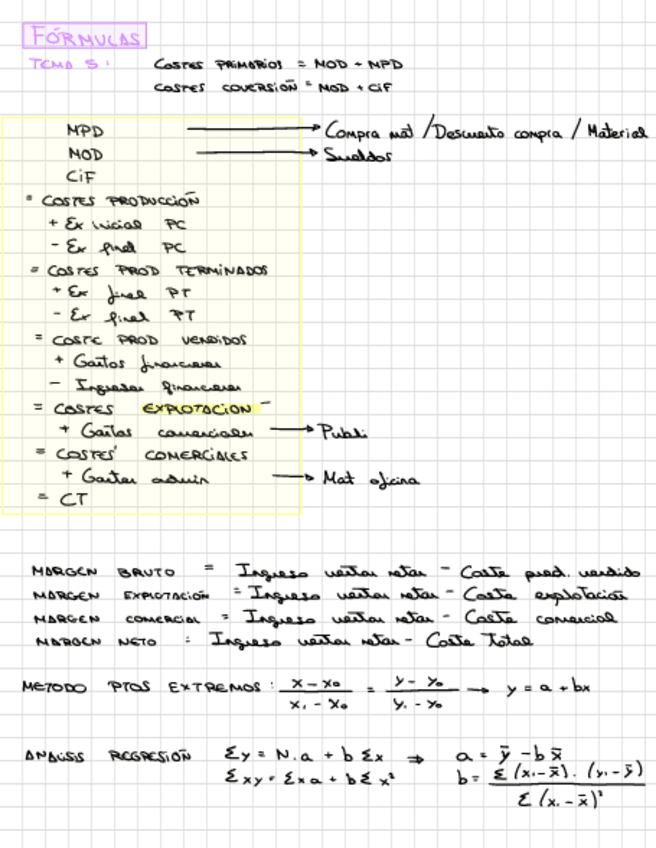 FÓRMULAS
TEMA 5: COSTES PRIMARIOS = MOD + MPD
COSTES COVERSIÓN = MOD + CiF
MPD → Compra mat / Descuento compra / Material
MOD → Sueldos
CiF
= COSTES PRODUCCIÓN
+ Ex inicial PC
- Ex final PC
= COSTES PROD TERMINADOS
+ Ex final PT
- Ex final PT
= COSTE PROD VENDIDOS
+ Gastos financieros
- Ingresos financieros
= COSTES EXPLOTACION
+ Gastos comerciales → Publi
= COSTES COMERCIALES
+ Gastos admin → Mat oficina
= CT
MARGEN BRUTO = Ingreso ventas netas - Coste prod. vendido
MARGEN EXPLOTACIÓN = Ingreso ventas netas - Coste explotación
MARGEN COMERCIAL = Ingreso ventas netas - Coste comercial
MARGEN NETO = Ingreso ventas netas - Coste Total
METODO PTOS EXTREMOS: x - x₀ / x₁ - x₀ = y - y₀ / y₁ - y₀ → y = a + bx
ANALISIS REGRESIÓN Σy = N.a + b Σx ⇒ a = ȳ - b x̄
Σxy = Σx a + b Σx² b = Σ(x₁ - x̄) . (y₁ - ȳ) / Σ(x₁ - x̄)²